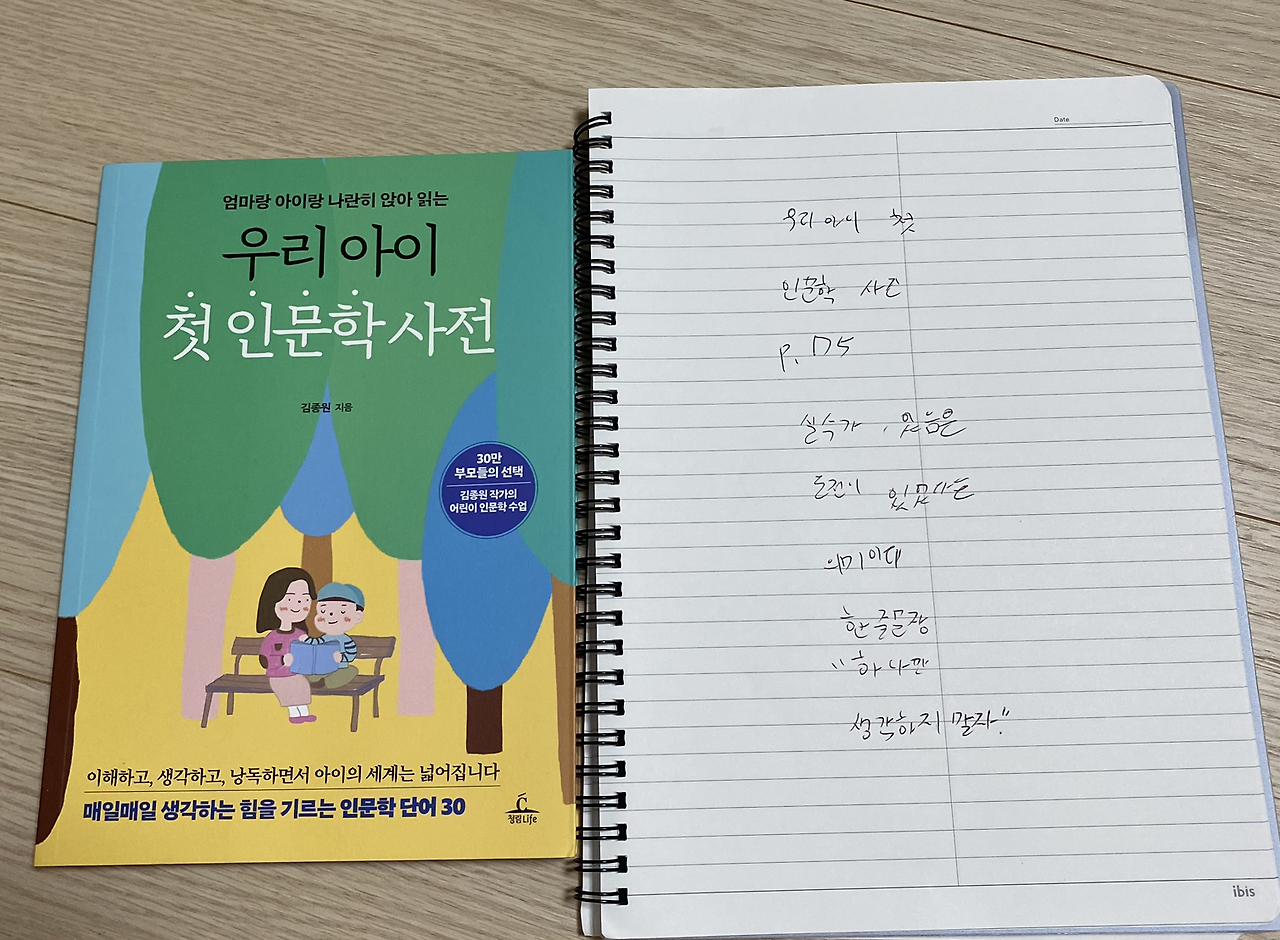 엄마랑 아이랑 나란히 앉아 읽는
우리 아이
첫 인문학 사전
김종원 지음
30만
부모들의 선택
김종원 작가의
어린이 인문학 수업
이해하고, 생각하고, 낭독하면서 아이의 세계는 넓어집니다
매일매일 생각하는 힘을 기르는 인문학 단어 30
청림Life
Date
우리 아이 첫
인문학 사전
p. 175
실수가 있음은
도전이 있었다는
의미이다
한 줄 문장
"하나만
생각하지 말자."
ibis